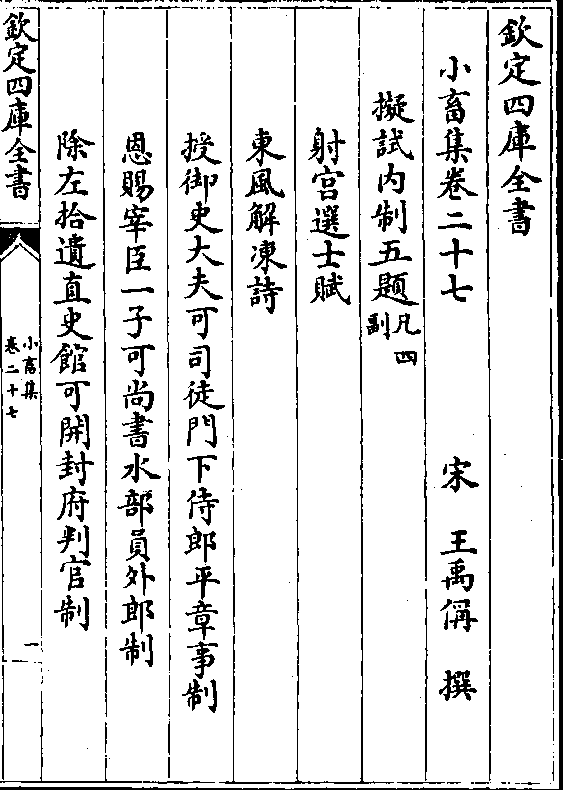 欽定四庫全書
小畜集卷二十七　宋　王禹偁　撰
擬試内制五題凡四
副
射宫選士賦
東風解凍詩
授御史大夫可司徒門下侍郎平章事制
恩賜宰臣一子可尚書水部員外郎制
除左拾遺直史館可開封府判官制
欽定四庫全書
小畜集
卷二十七
一